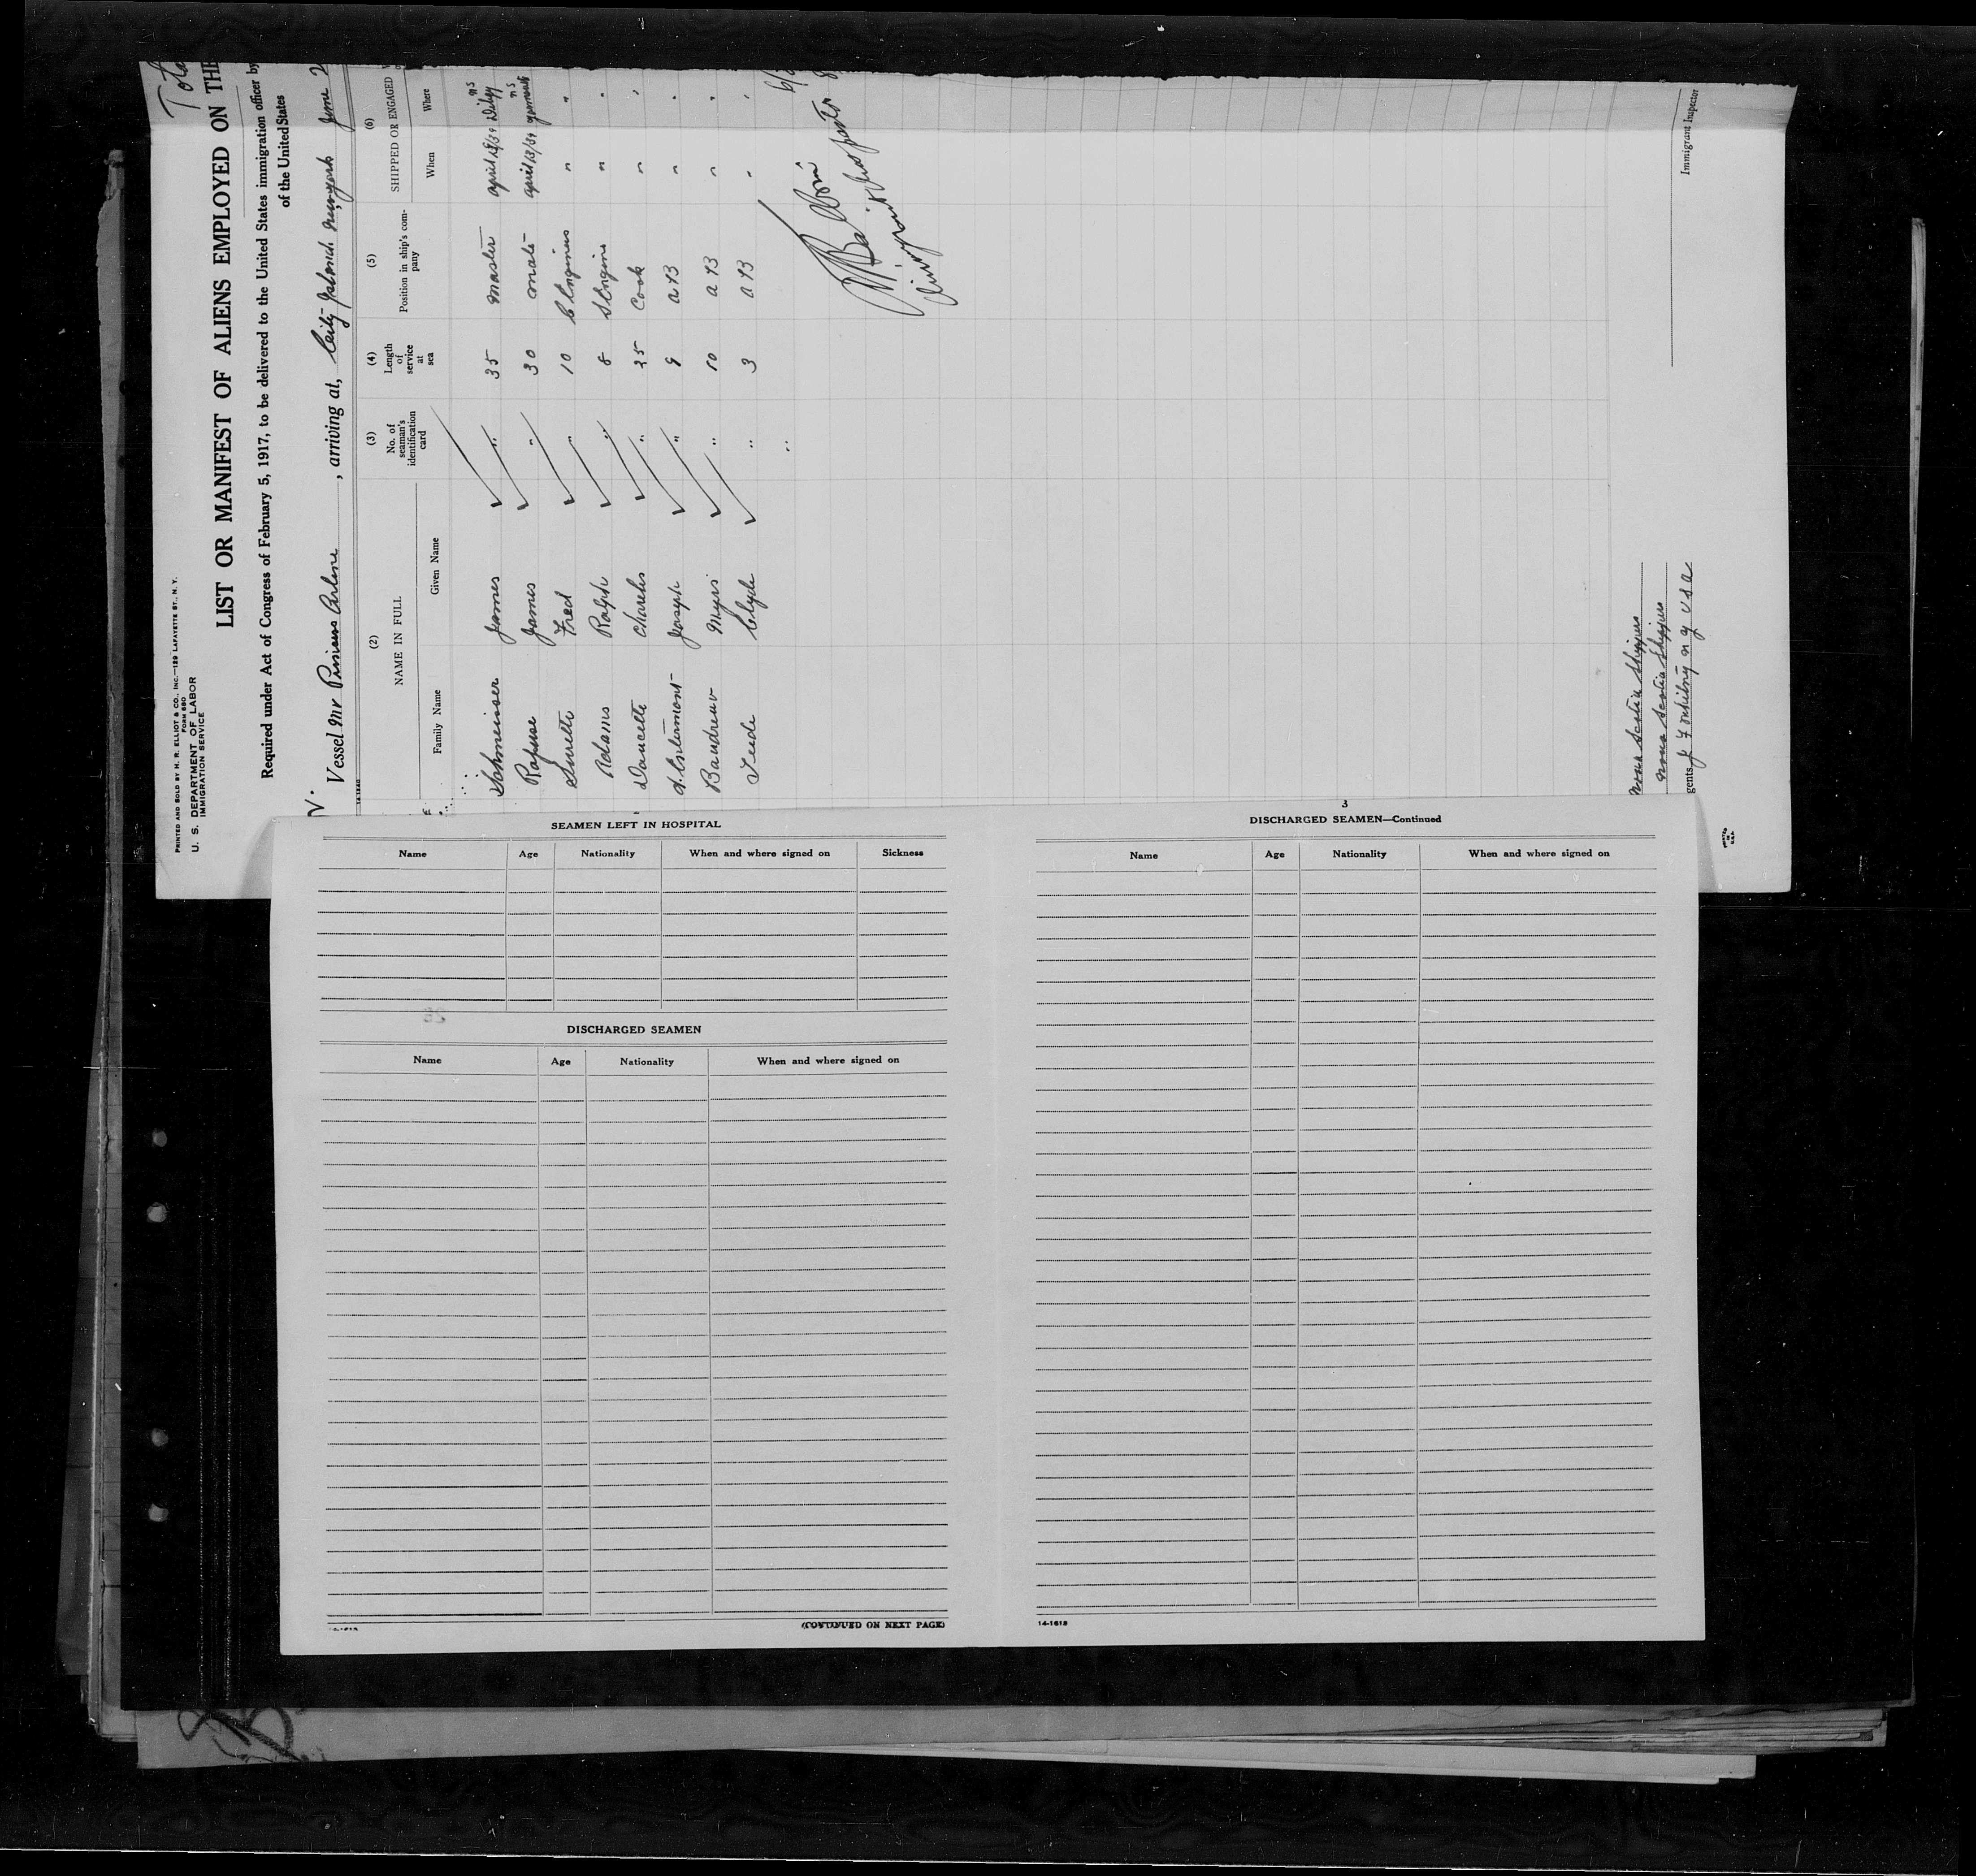 Tota
PRINTED AND SOLD BY H. R. ELLIOT & CO., INC.—129 LAFAYETTE ST., N. Y.
FORM 680
U. S. DEPARTMENT OF LABOR
IMMIGRATION SERVICE
LIST OR MANIFEST OF ALIENS EMPLOYED ON THE
Required under Act of Congress of February 5, 1917, to be delivered to the United States immigration officer by
of the United States
Vessel MV Arline, arriving at, City Island New York June 2
(2) (3) (4) (5) (6)
NAME IN FULL No. of seaman's identification card Length of service at sea Position in ship's company SHIPPED OR ENGAGED
Family Name Given Name When Where
Schmeisser James " 35 master april 13/34 N S
James " 30 mate april 13/34 N S
Surette Fred " 10 " "
Adams Ralph " 8 " "
Doucette Charles " 25 Cook " "
Joseph " 9 a B " "
Myers " 10 a B " "
Clyde " 3 a B " "
Immigrant Inspector
Nova Scotia Shippers
Nova Scotia Shippers
gents N Y U S A
SEAMEN LEFT IN HOSPITAL
Name Age Nationality When and where signed on Sickness
DISCHARGED SEAMEN
Name Age Nationality When and where signed on
(CONTINUED ON NEXT PAGE)
3
DISCHARGED SEAMEN—Continued
Name Age Nationality When and where signed on
14-1613